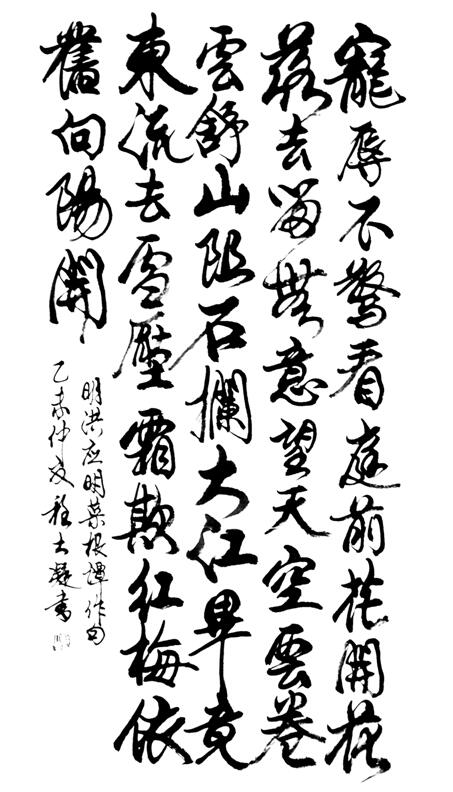 寵辱不驚看庭前花開花
落去留無意望天空雲卷
雲舒山阻石攔大江畢竟
東流去雪壓霜欺紅梅依
舊向陽開
明洪应明菜根譚作句
乙未仲夏程大凝書